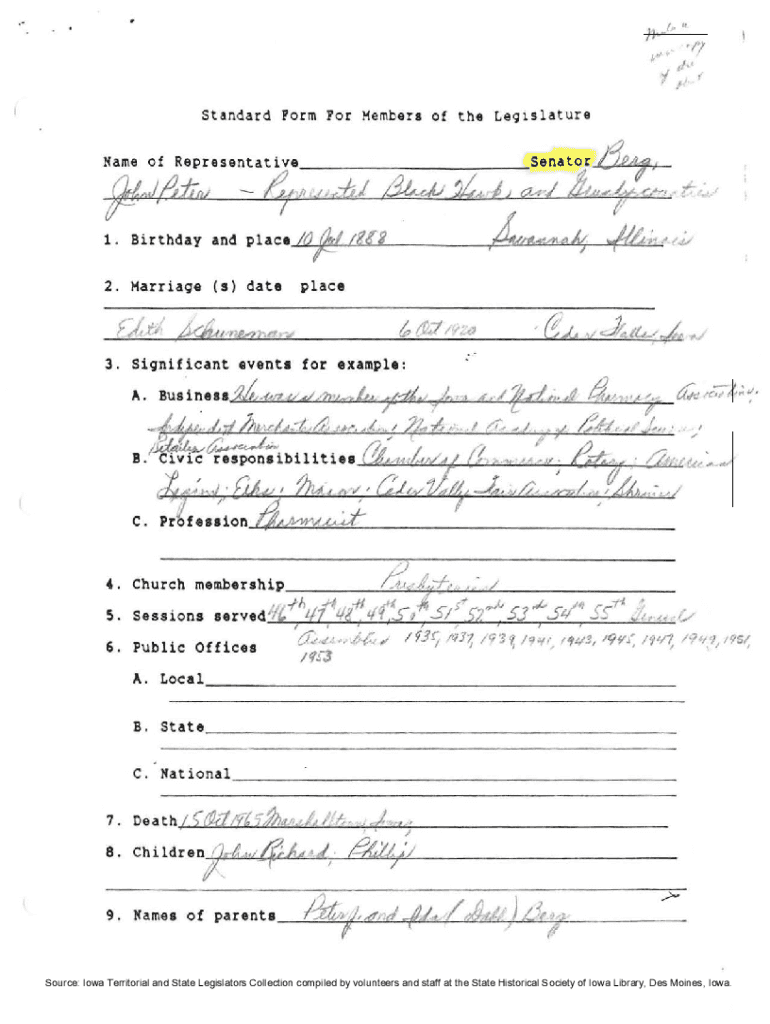 of the
Standard Form For Members of the Legislature
Name of Representative Senator Berg,
John Peter - Represented Black Hawk and Grundy counties
1. Birthday and place 10 Jul 1888 Savannah, Illinois
2. Marriage (s) date place
Edith Schuneman 6 Oct 1920 Cedar Falls, Iowa
3. Significant events for example:
A. Business He was a member of the Iowa and National Pharmacy Association;
Independent Merchants Association; National Academy of Political Science;
Retailers Association
B. Civic responsibilities Chamber of Commerce; Rotary; American
Legion; Elks; Mason; Cedar Valley Fair Association; Shriner
C. Profession Pharmacist
4. Church membership Presbyterian
5. Sessions served 46th, 47th, 48th, 49th, 50th, 51st, 52nd, 53rd, 54th, 55th General
Assemblies 1935, 1937, 1939, 1941, 1943, 1945, 1947, 1949, 1951,
6. Public Offices 1953
A. Local
B. State
C. National
7. Death 15 Oct 1965 Marshalltown, Iowa
8. Children John Richard; Phillip
9. Names of parents Peter J. and Ada (Dahl) Berg
Source: Iowa Territorial and State Legislators Collection compiled by volunteers and staff at the State Historical Society of Iowa Library, Des Moines, Iowa.